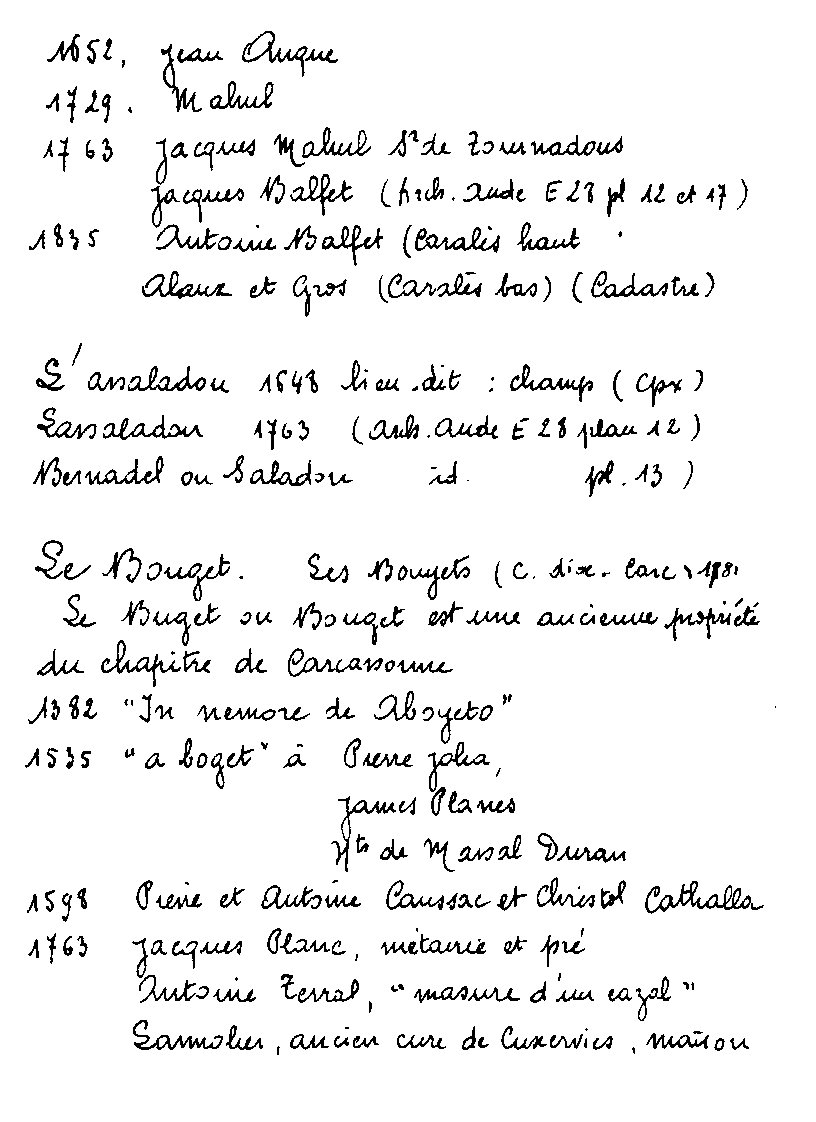 1652, Jean Auque
1729. Mahul
1763 Jacques Mahul Sr de Tournadous
Jacques Balfet (Arch. Aude E 28 pl 12 et 17)
1835 Antoine Balfet (Caralès haut
Alaux et Gros (Caralès bas) (Cadastre)
L'ansaladou 1648 lieu.dit : champ (Cpx)
Lansaladou 1763 (Arch. Aude E 28 plan 12)
Bernadel ou Saladou id. pl. 13)
Le Bouget. Les Boujets (C. dioc. Carc
Le Buget ou Bouget est une ancienne propriété
du chapitre de Carcassonne
1382 "In nemore de Aboyeto"
1535 "a boget" à Pierre Jolia,
James Planes
Hts de Marsal Duran
1598 Pierre et Antoine Caussac et Christol Cathalla
1763 Jacques Planc, métairie et pré
Antoine Terral, "masure d'un cazal"
ancien curé de Cuxervies, maison